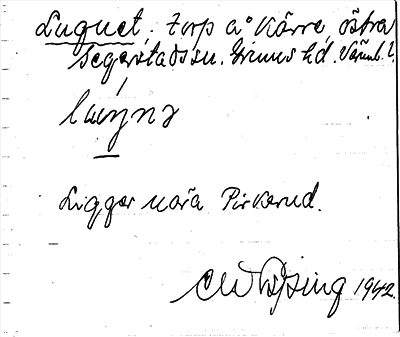 Luguet, torp å Kärre, östra
Segerstads sn. Grums hd. Värml. l.
Ligger nära Pirkerud.
1942.